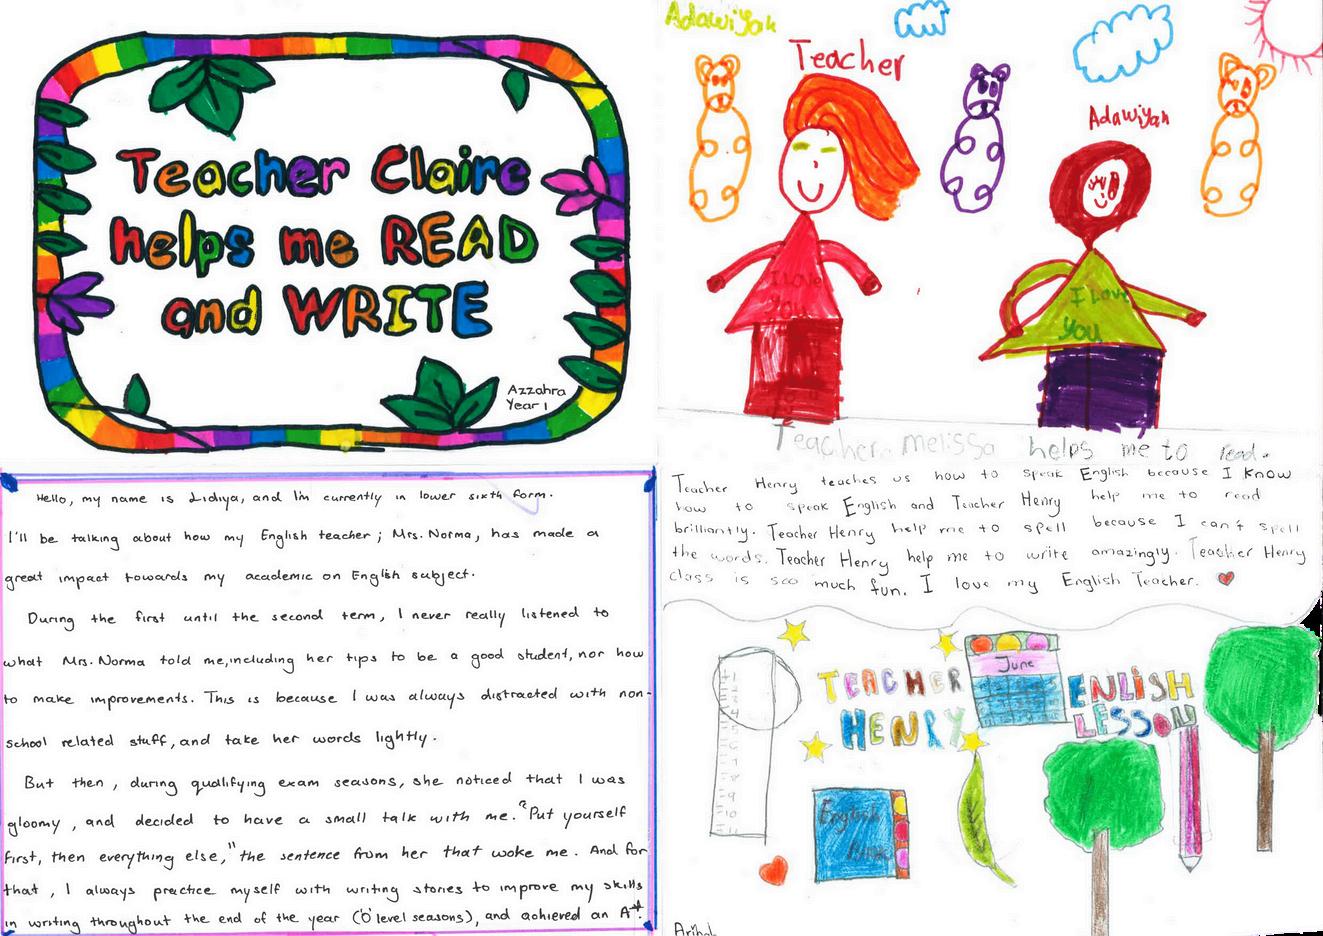 Teacher Claire
helps me READ
and WRITE
Azzahra
Year 1
Adawiyah
Teacher
Adawiyah
I love
you
I love
you
Teacher melissa helps me to read.
Hello, my name is Lidiya, and I'm currently in lower sixth form.
I'll be talking about how my English teacher; Mrs. Norma, has made a
great impact towards my academic on English subject.
During the first until the second term, I never really listened to
what Mrs. Norma told me, including her tips to be a good student, nor how
to make improvements. This is because I was always distracted with non-
school related stuff, and take her words lightly.
But then, during qualifying exam seasons, she noticed that I was
gloomy, and decided to have a small talk with me. "Put yourself
first, then everything else," the sentence from her that woke me. And for
that, I always practice myself with writing stories to improve my skills
in writing throughout the end of the year ('O' level seasons), and achieved an A*.
Teacher Henry teaches us how to speak English because I know
how to speak English and Teacher Henry help me to read
brilliantly. Teacher Henry help me to spell because I can't spell
the words. Teacher Henry help me to write amazingly. Teacher Henry
class is soo much fun. I love my English Teacher.
TEACHER
HENRY
June
ENLISH
LESSON
English